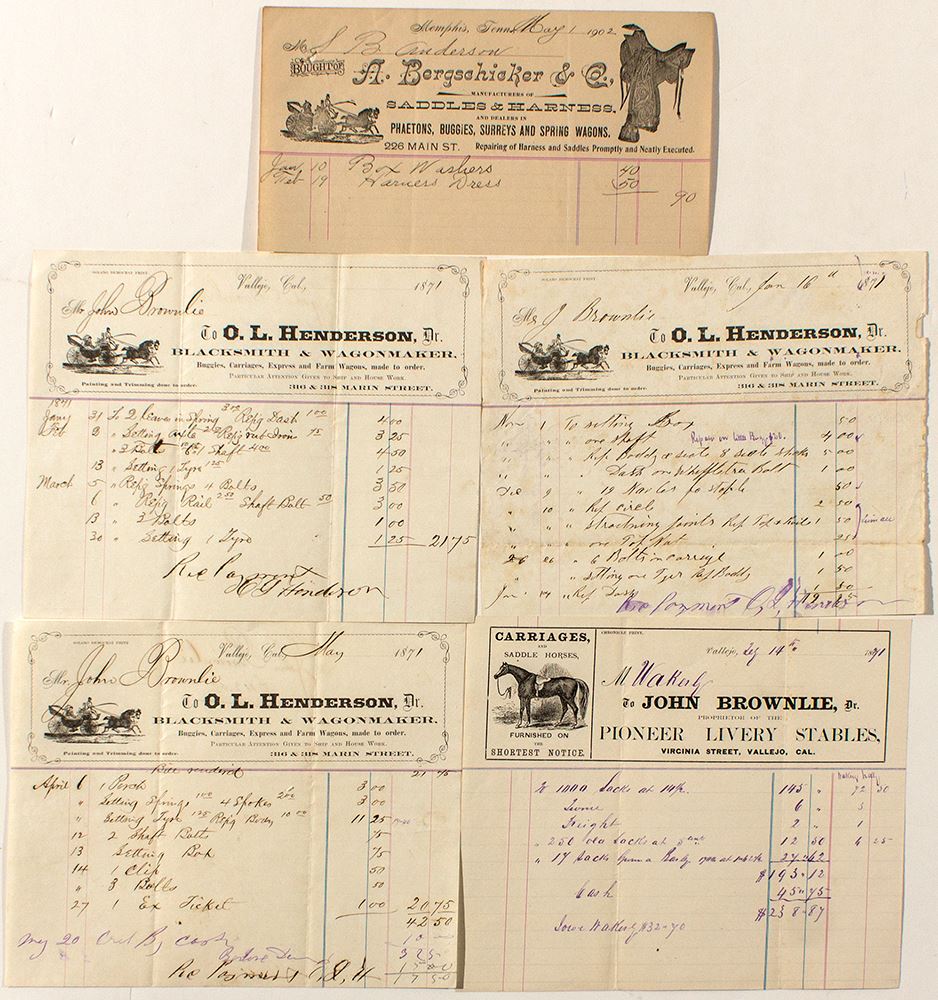 Memphis, Tenn. May 1 1902
M J B Anderson
BOUGHT OF
A. Bergschicker & Co.,
MANUFACTURERS OF
SADDLES & HARNESS,
AND DEALERS IN
PHAETONS, BUGGIES, SURREYS AND SPRING WAGONS,
226 MAIN ST. Repairing of Harness and Saddles Promptly and Neatly Executed.
Jan 10 Box Washers 40
Feb 19 Harness Dress 50
90
SOLANO DEMOCRAT PRINT.
Vallejo, Cal., 1871
Mr John Brownlie
To O. L. HENDERSON, Dr.
BLACKSMITH & WAGONMAKER.
Buggies, Carriages, Express and Farm Wagons, made to order.
PARTICULAR ATTENTION GIVEN TO SHIP AND HOUSE WORK.
Painting and Trimming done to order.
316 & 318 MARIN STREET.
1871
Jany 31 To 2 Leaves in Spring 3 00 Rep'g Dash 1 00 4 00
Feb 2 " Setting Axle Rep'g Iron 75 3 25
" 3 Bolts 1 Shaft 4 00 4 50
13 " Setting 1 Tyre 1 25 1 25
March 5 " Rep'g Springs 4 Bolts 3 50
6 " Rep'g Rail 2 50 Shaft Bolt 50 3 00
13 " 3 Bolts 1 00
30 " Setting 1 Tyre 1 25 21 75
Rec Payment
O L Henderson
SOLANO DEMOCRAT PRINT.
Vallejo, Cal., Jan 16 1871
Mr J Brownlie
To O. L. HENDERSON, Dr.
BLACKSMITH & WAGONMAKER.
Buggies, Carriages, Express and Farm Wagons, made to order.
PARTICULAR ATTENTION GIVEN TO SHIP AND HOUSE WORK.
Painting and Trimming done to order.
316 & 318 MARIN STREET.
Nov 1 To setting Box 50
" " one shaft 4 00
" " Rep Boddy & seate 8 5 00
" " Dash on Whiffletree Bolt 1 00
Dec 9 " 50
" 10 " Rep circle 2 50
" " joints Rep Top 1 50
" " one Top Nut 25
26 " 6 Bolts in carrige 1 00
" " sitting one Tyer Rep Boddy 1 50
Jan 14 " Rep Dash
Rec Payment O L Henderson
SOLANO DEMOCRAT PRINT.
Vallejo, Cal., May 1871
Mr. John Brownlie
To O. L. HENDERSON, Dr.
BLACKSMITH & WAGONMAKER.
Buggies, Carriages, Express and Farm Wagons, made to order.
PARTICULAR ATTENTION GIVEN TO SHIP AND HOUSE WORK.
Painting and Trimming done to order.
316 & 318 MARIN STREET.
Bill rendered 21 75
April 6 1 Perch 3 00
" Setting Springs 1 00 4 Spokes 2 00 3 00
" Setting Tyre 1 25 Rep'g Body 10 00 11 25
12 2 Shaft Bolts 75
13 Setting Box 75
14 1 Clip 50
" 3 Bolts 50
27 1 Ex Ticket 1 00 20 75
42 50
May 20 Crd By Cash
Balance Due
Rec Payment O L H
CARRIAGES,
AND
SADDLE HORSES,
FURNISHED ON
THE
SHORTEST NOTICE.
CHRONICLE PRINT.
Vallejo, 14th 1871
M Wakely
To JOHN BROWNLIE, Dr.
PROPRIETOR OF THE
PIONEER LIVERY STABLES,
VIRGINIA STREET, VALLEJO, CAL.
To 1000 Sacks at 145 " 72 50
Twine 6 " 3
Freight 2 " 1
" 250 old Sacks at 5 cents 12 50 6 25
" 17 Sacks 27 62
$193.12
Cash 45 75
$238.87